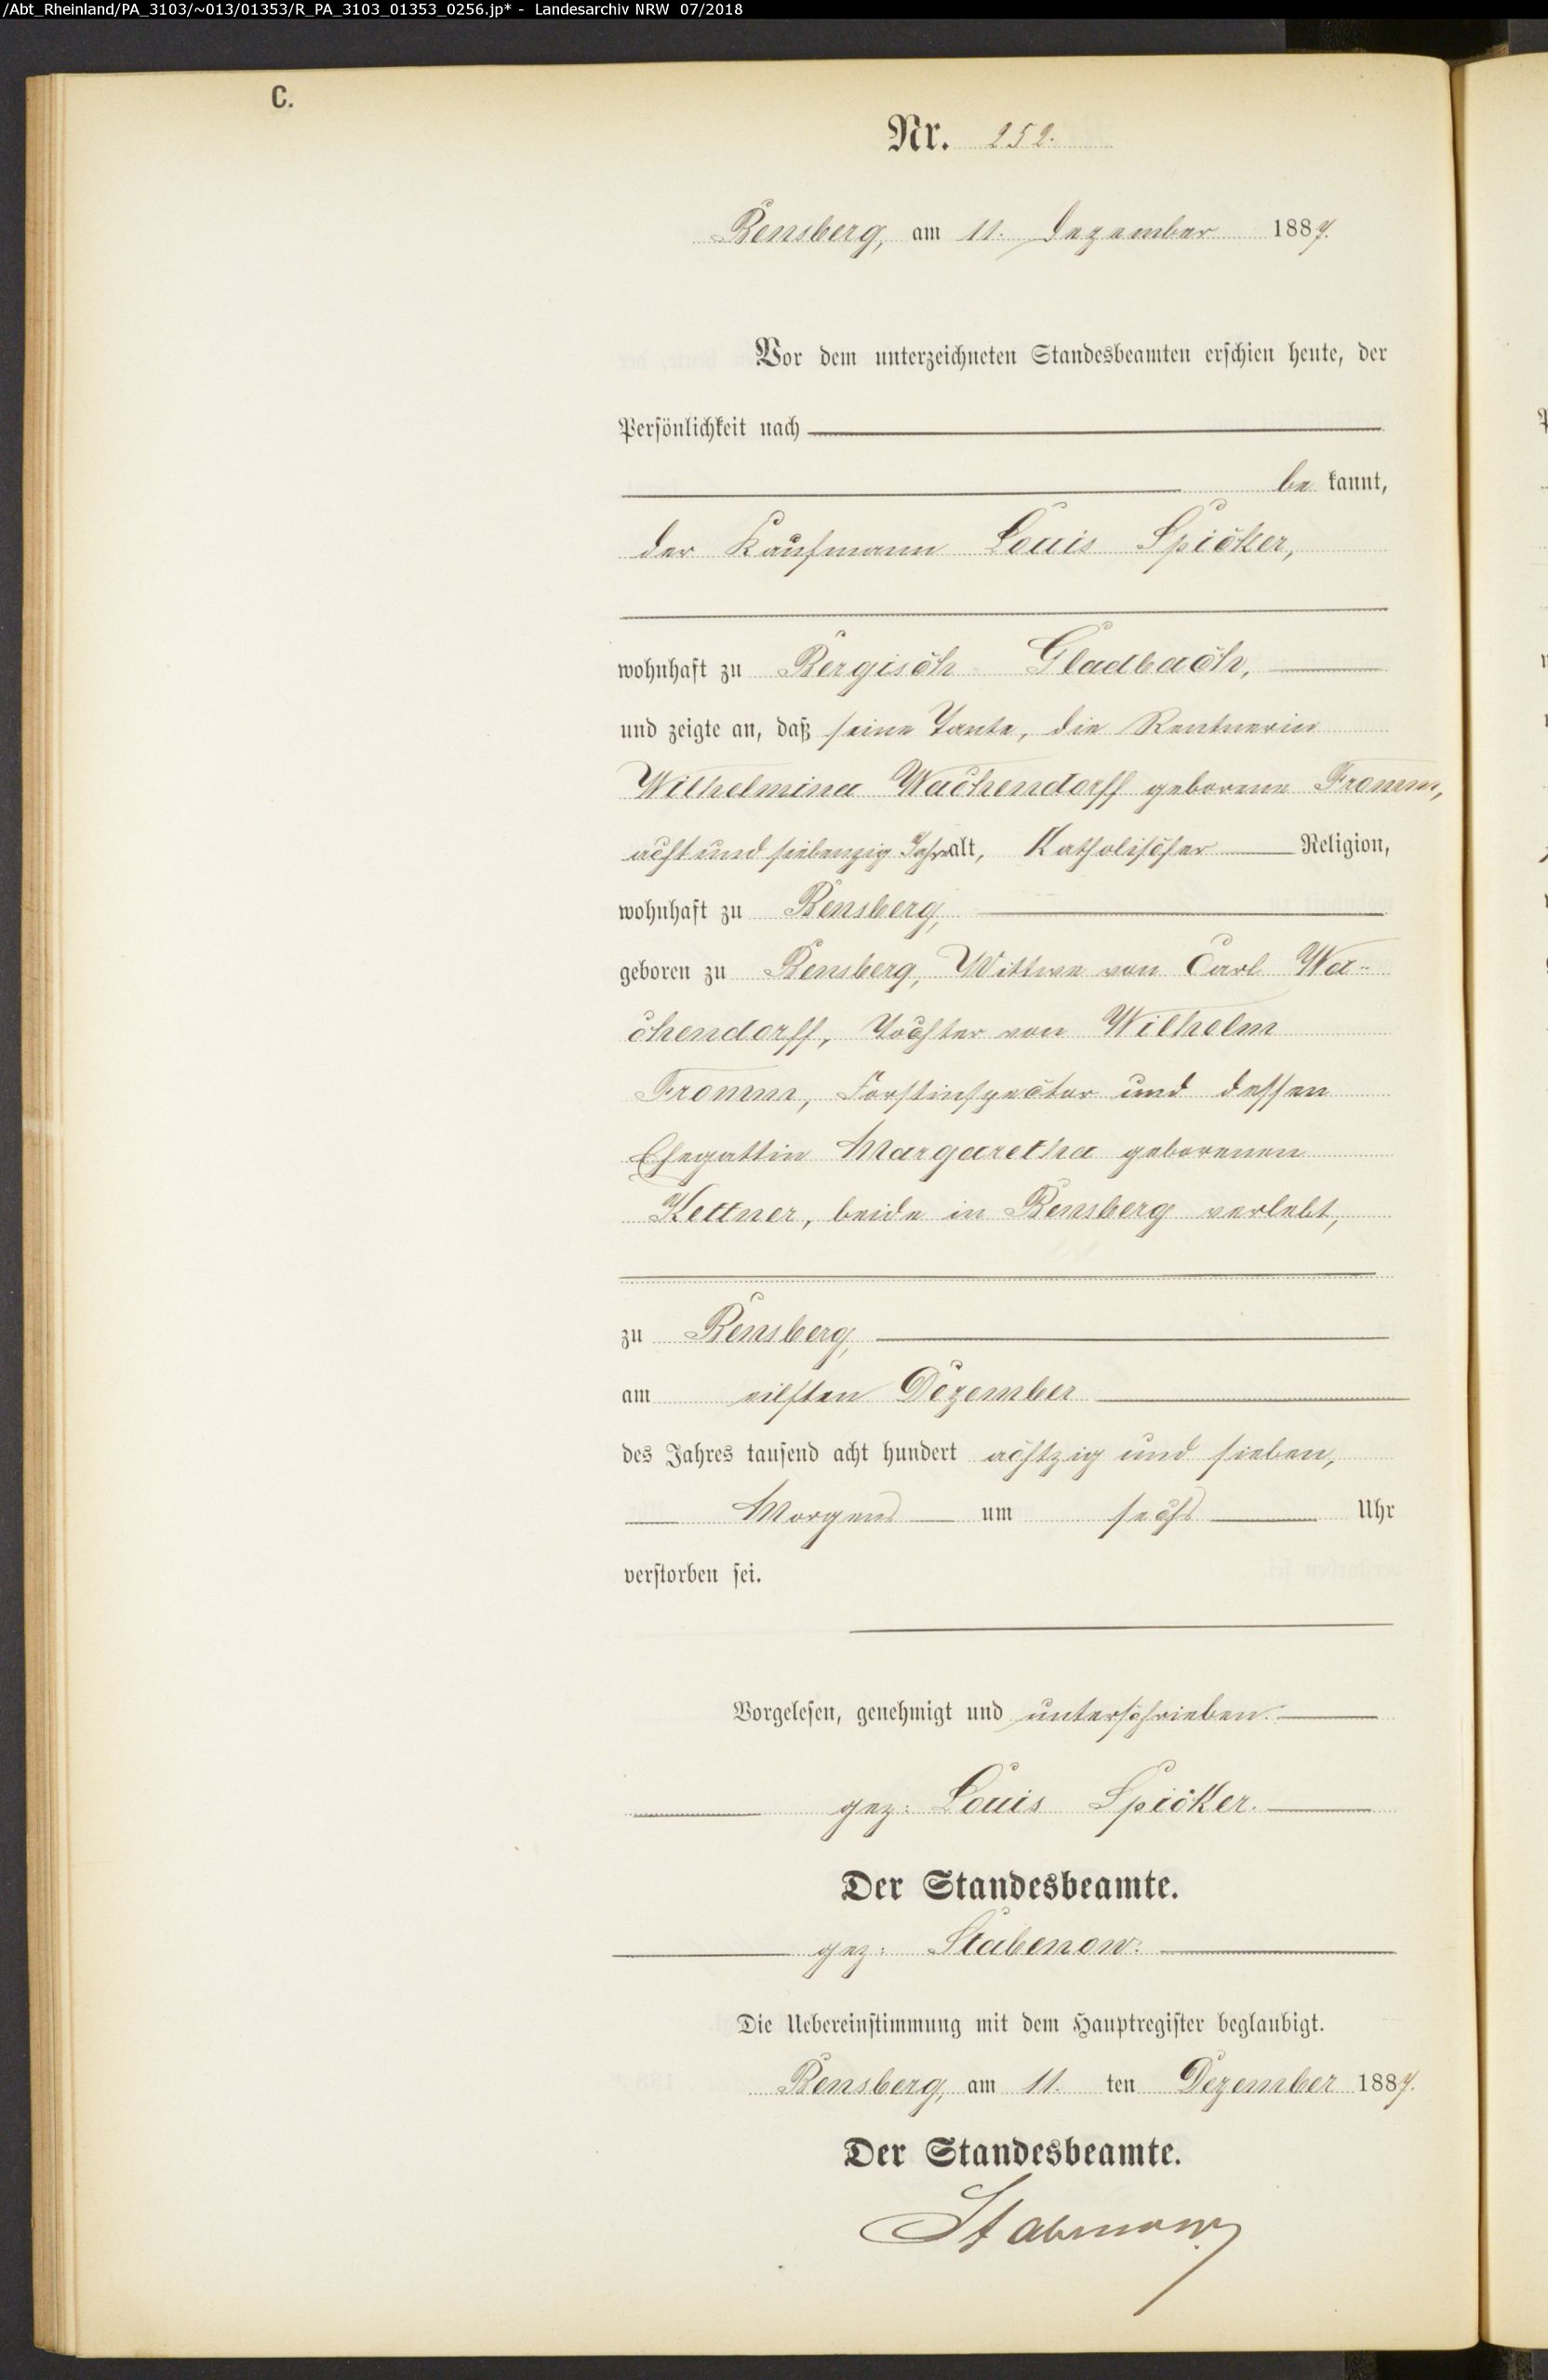 /Abt_Rheinland/PA_3103/~013/01353/R_PA_3103_01353_0256.jp* - Landesarchiv NRW 07/2018
C.
Nr. 252.
Bensberg, am 11. Dezember 1887.
Vor dem unterzeichneten Standesbeamten erschien heute, der
Persönlichkeit nach
be kannt,
der Kaufmann Louis Spicker,
wohnhaft zu Bergisch-Gladbach,
und zeigte an, daß seine Tante, die Rentnerin
Wilhelmina Wachendorff geborene Fromm,
acht und siebenzig Jahre alt, Katholischer Religion,
wohnhaft zu Bensberg,
geboren zu Bensberg, Wittwe von Carl Wa-
chendorff, Tochter von Wilhelm
Fromm, Forstinspector und dessen
Ehegattin Margaretha geborenen
Kettner, beide in Bensberg verlebt,
zu Bensberg,
am eilften Dezember
des Jahres tausend acht hundert achtzig und sieben,
Morgens um sechs Uhr
verstorben sei.
Vorgelesen, genehmigt und unterschrieben.
gez: Louis Spicker.
Der Standesbeamte.
gez: Stabenow.
Die Uebereinstimmung mit dem Hauptregister beglaubigt.
Bensberg, am 11. ten Dezember 1887.
Der Standesbeamte.
Stabenow